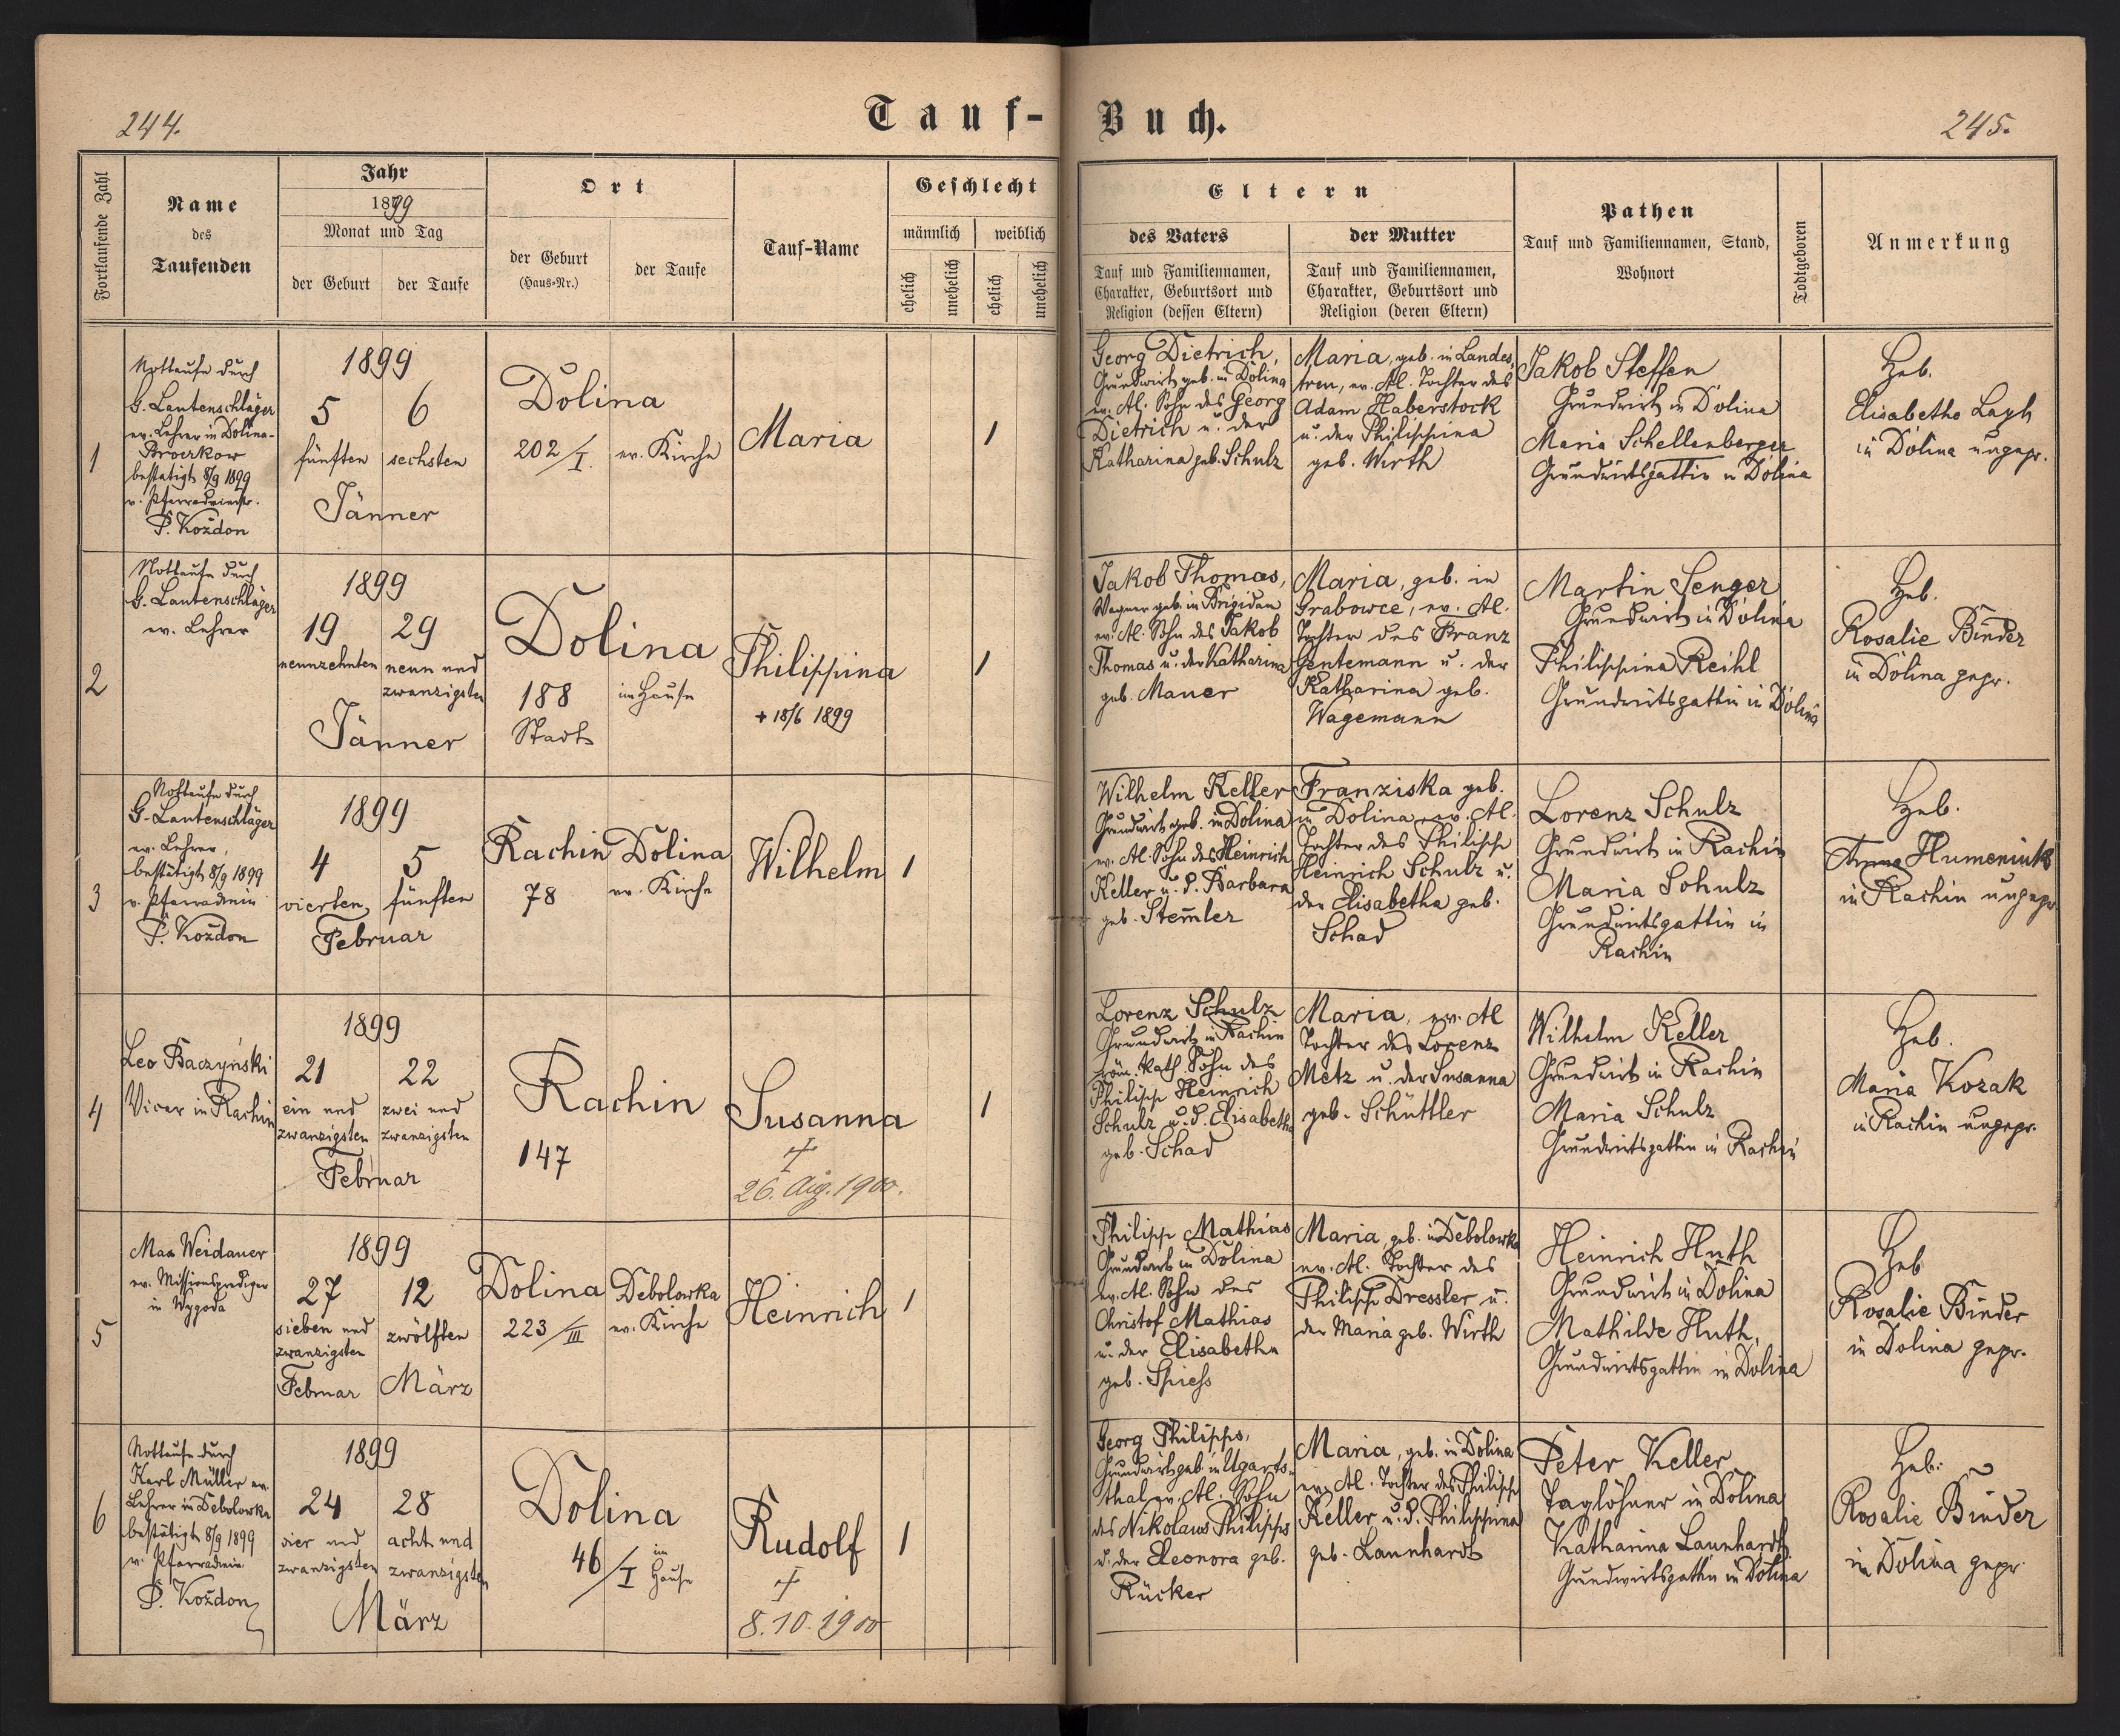 244.
Tauf-
Buch.
245.
Fortlaufende Zahl
Name
des
Taufenden
Jahr
1899
Monat und Tag
der Geburt
der Taufe
Ort
der Geburt
(Haus-Nr.)
der Taufe
Tauf-Name
Geschlecht
männlich
weiblich
ehelich
unehelich
ehelich
unehelich
Eltern
des Vaters
Tauf und Familiennamen,
Charakter, Geburtsort und
Religion (dessen Eltern)
der Mutter
Tauf und Familiennamen,
Charakter, Geburtsort und
Religion (deren Eltern)
Pathen
Tauf und Familiennamen, Stand,
Wohnort
Todtgeboren
Anmerkung
1
Nottaufe durch
G. Lautenschläger
ev. Lehrer in Dolina-
Broczkow
bestätigt 8/9 1899
v. Pfarradminstr.
P. Kozdon
1899
5
fünften
6
sechsten
Jänner
Dolina
202/I.
ev. Kirche
Maria
1
Georg Dietrich,
Grundwirt geb. in Dolina
ev. Al. Sohn des Georg
Dietrich u. der
Katharina geb. Schulz
Maria, geb. in Landes,
treu, ev. Al. Tochter des
Adam Haberstock
u. der Philippina
geb. Wirth
Jakob Steffen
Grundwirt in Dolina
Maria Schellenberger
Grundwirtsgattin in Dolina
Heb.
Elisabetha Layh
in Dolina ungepr.
2
Nottaufe durch
G. Lautenschläger
ev. Lehrer
1899
19
neunzehnten
29
neun und
zwanzigsten
Jänner
Dolina
188
Stadt
im Hause
Philippina
+ 18/6 1899
1
Jakob Thomas,
Wagner geb. in Brigidau
ev. Al. Sohn des Jakob
Thomas u. der Katharina
geb. Mauer
Maria, geb. in
Grabowce, ev. Al.
Tochter des Franz
Gentemann u. der
Katharina geb.
Wagemann
Martin Senger
Grundwirt in Dolina
Philippina Reihl
Grundwirtsgattin in Dolina
Heb.
Rosalie Binder
in Dolina gepr.
3
Nottaufe durch
G. Lautenschläger
ev. Lehrer,
bestätigt 8/9 1899
v. Pfarradmin
P. Kozdon
1899
4
vierten
5
fünften
Februar
Rachin
78
Dolina
ev. Kirche
Wilhelm
1
Wilhelm Keller
Grundwirt geb. in Dolina
ev. Al. Sohn des Heinrich
Keller u. d. Barbara
geb. Stem̄ler
Franziska geb.
in Dolina, ev. Al.
Tochter des Philipp
Heinrich Schulz u.
der Elisabetha geb.
Schad
Lorenz Schulz
Grundwirt in Rachin
Maria Schulz
Grundwirtsgattin in
Rachin
Heb.
Anna Humeniuk
in Rachin ungepr
4
Leo Baczyński
Vicar in Rachin
1899
21
ein und
zwanzigsten
22
zwei und
zwanzigsten
Februar
Rachin
147
Susanna
†
26. Aug. 1900.
1
Lorenz Schulz
Grundwirt in Rachin
röm. kath. Sohn des
Philipp Heinrich
Schulz u. d. Elisabetha
geb. Schad
Maria, ev. Al
Tochter des Lorenz
Metz u. der Susanna
geb. Schüttler
Wilhelm Keller
Grundwirt in Rachin
Maria Schulz
Grundwirtsgattin in Rachin
Heb.
Maria Kozak
in Rachin ungepr.
5
Max Weidauer
ev. Missionsprediger
in Wygoda
1899
27
sieben und
zwanzigsten
Februar
12
zwölften
März
Dolina
223/III
Debolowka
ev. Kirche
Heinrich
1
Philipp Mathias
Grundwirt in Dolina
ev. Al. Sohn des
Christof Mathias
u. der Elisabetha
geb. Spiess
Maria, geb. in Debolowka
ev. Al. Tochter des
Philipp Dressler u.
der Maria geb. Wirth
Heinrich Huth
Grundwirt in Dolina
Mathilde Huth,
Grundwirtsgattin in Dolina
Heb
Rosalie Binder
in Dolina gepr.
6
Nottaufe durch
Karl Müller ev.
Lehrer in Debolowka
bestätigt 8/9 1899
v. Pfarradmin
P. Kozdon
1899
24
vier und
zwanzigsten
28
acht und
zwanzigsten
März
Dolina
46/I
im
Hause
Rudolf
†
8.10.1900
1
Georg Philipps,
Grundwirt geb. in Ugarts-
thal ev. Al. Sohn
des Nikolaus Philipps
u. der Eleonora geb.
Rücker
Maria, geb. in Dolina
ev. Al. Tochter des Philipp
Keller u. d. Philippina
geb. Launhardt
Peter Keller
Taglöhner in Dolina
Katharina Launhardt
Grundwirtsgattin in Dolina
Heb.
Rosalie Binder
in Dolina gepr.